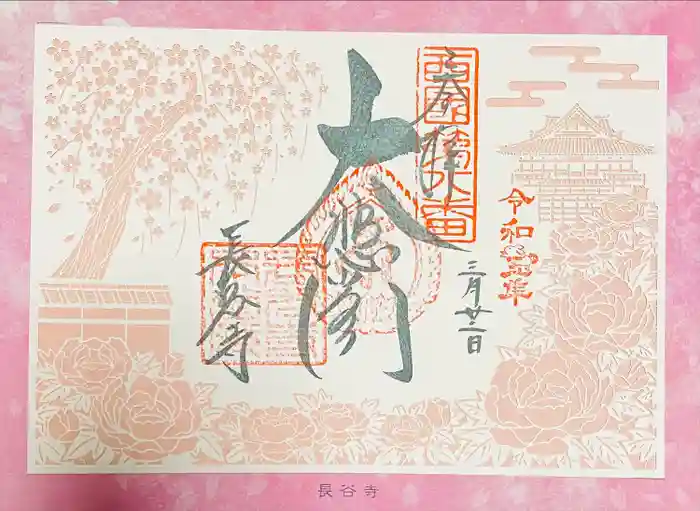 奉拝
西國第八番
令和五年
三月廿二日
大悲閣
長谷寺
長谷寺